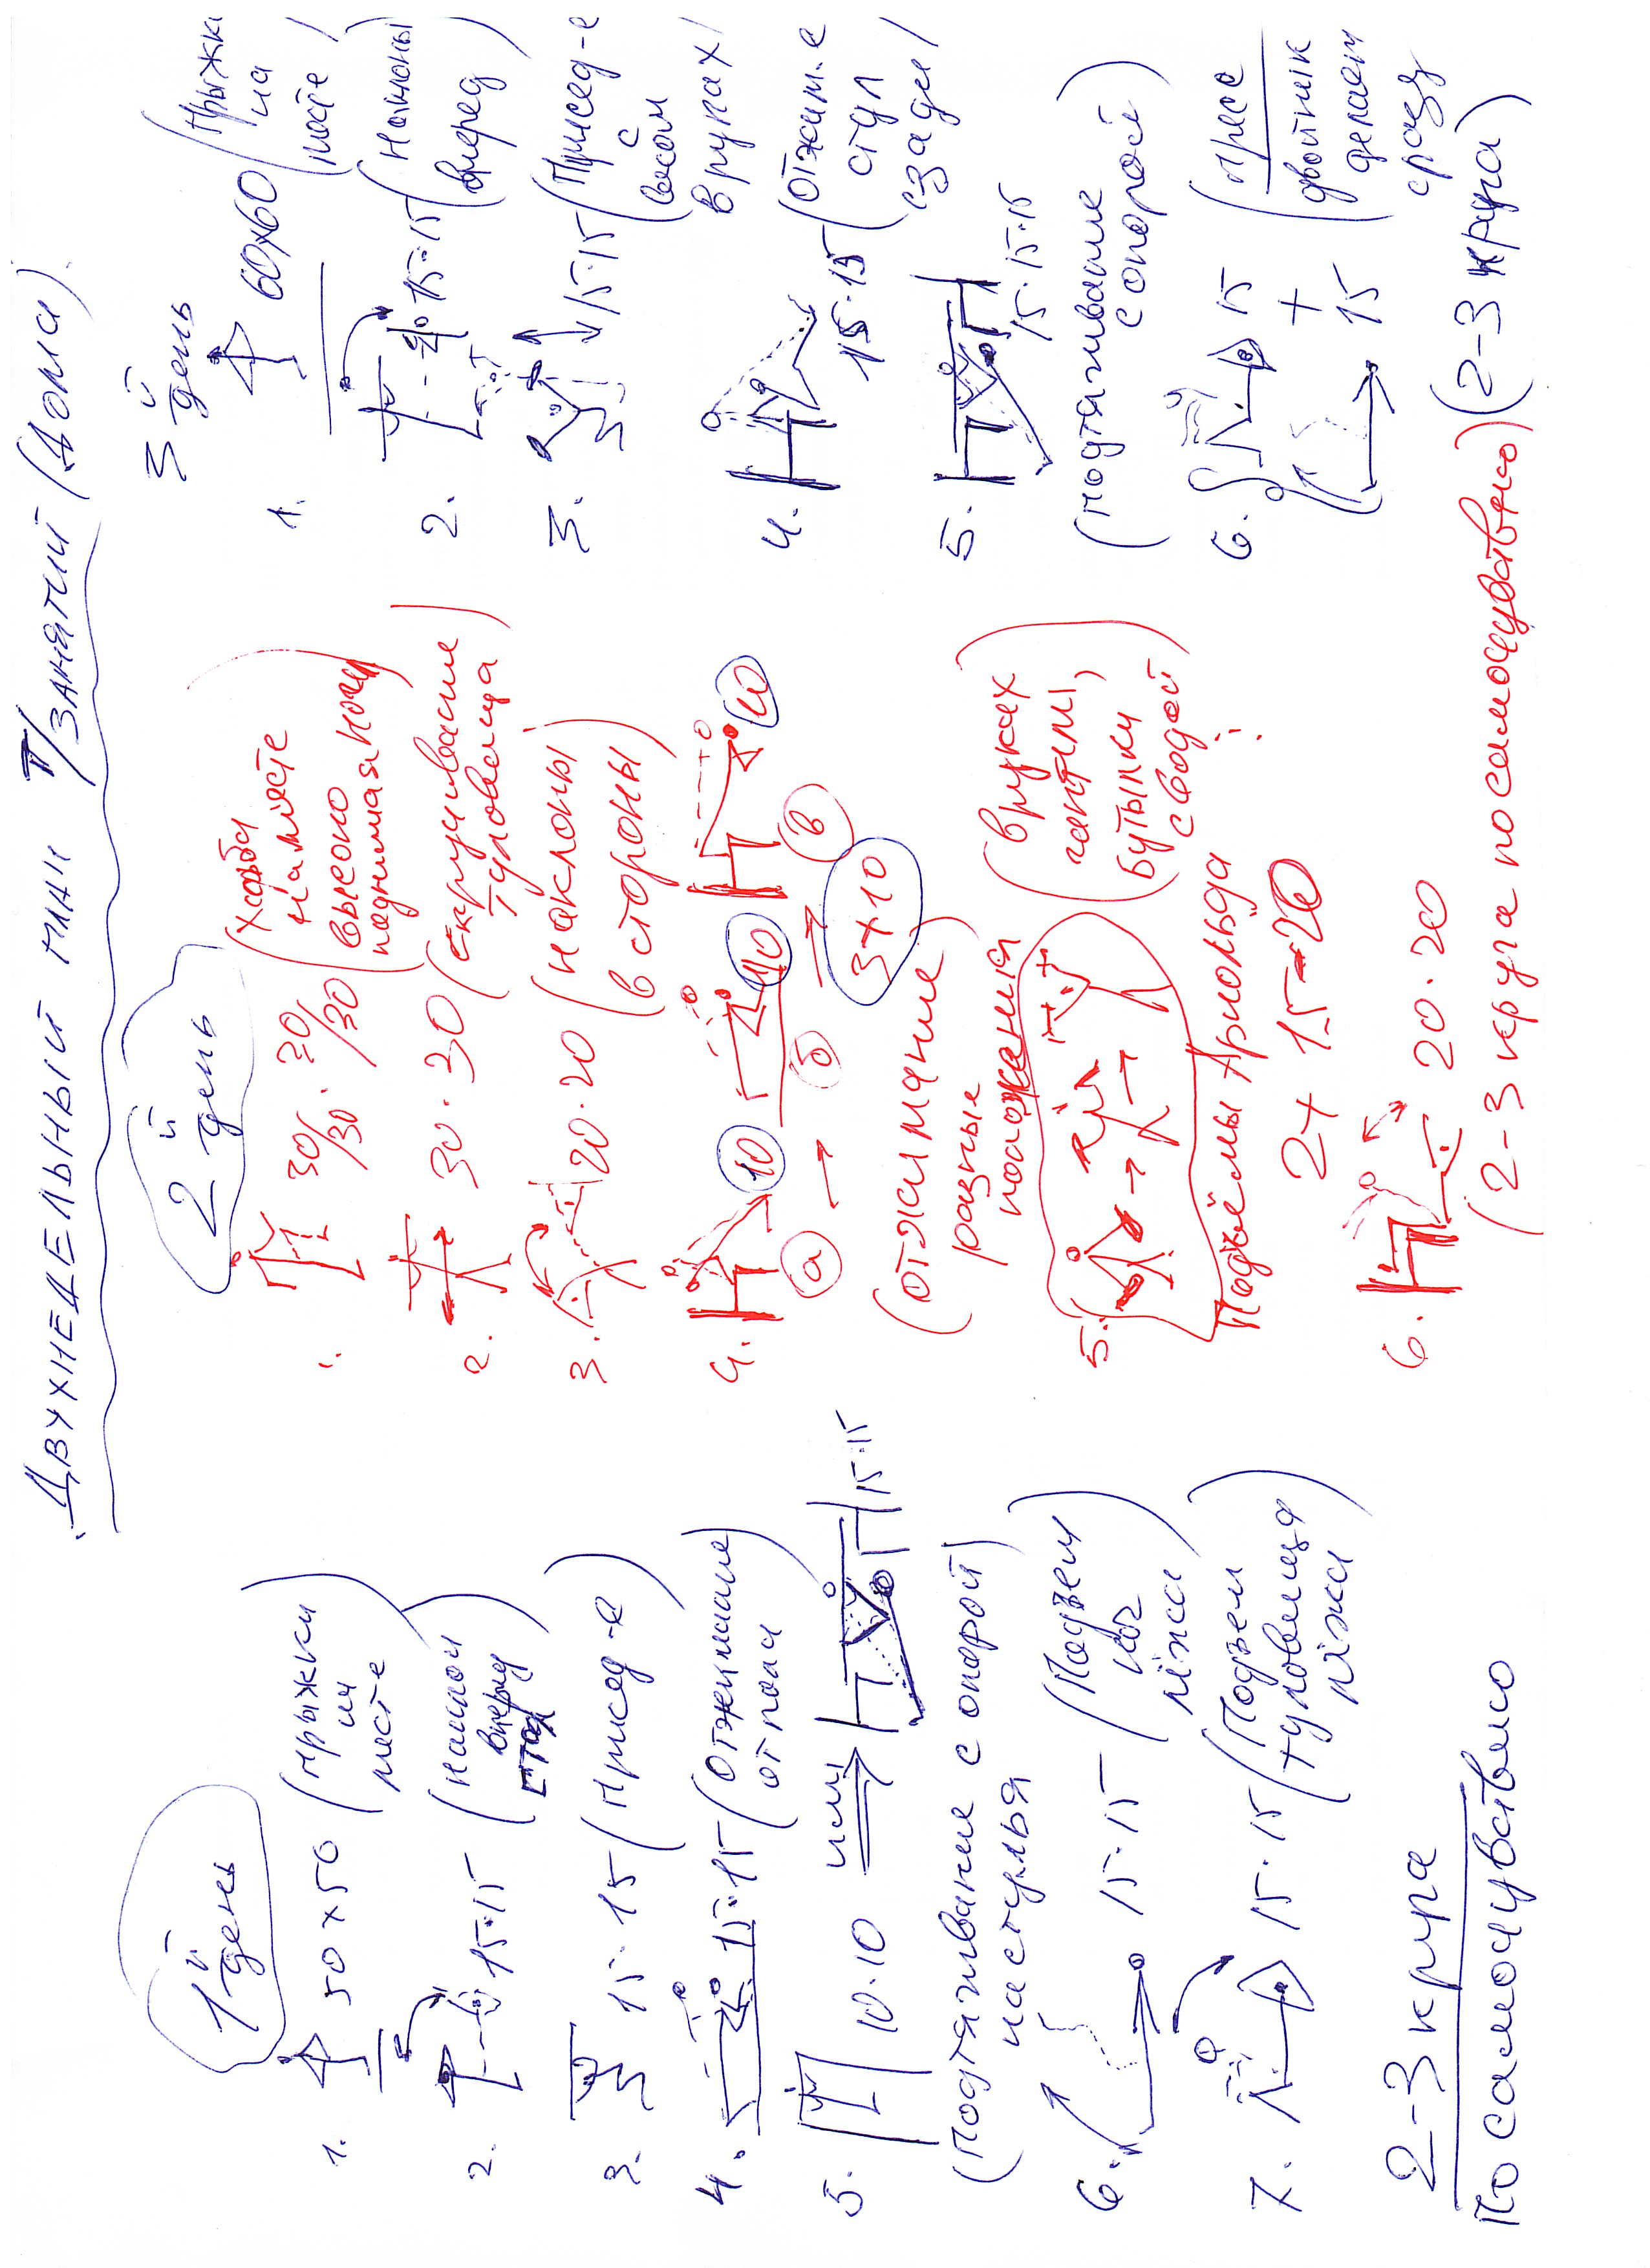 Двухнедельный план п/занятий (дома).
1й день
1. 50 x 50 (прыжки
на
месте)
2. 15·15 (наклон
вперед
стоя)
3. 15·15 (присед-е)
4. 15·15 (отжимание
от пола)
5. 10·10 или 15·15
(подтягивание с опорой
на стулья
6. 15·15 (Подъем
ног
лёжа)
7. 15·15 (Подъем
туловища
лёжа)
2-3 круга
по самочувствию
2й день
1. 30/30 · 30/30 (ходьба
на месте
высоко
поднимая ноги)
2. 30·30 (скручивание
туловища)
3. 20·20 (наклоны
в стороны)
4. 10 10 10
а б в
3x10
(отжимание
разные
положения)
5. (в руках
гантели,
бутылки
с водой)
Подъёмы Арнольда
2x 15-20
6. 20·20
(2-3 круга по самочувствию)
3й день
1. 60x60 (прыжки
на
месте)
2. 15·15 (наклоны
вперед)
3. 15·15 (Присед-е
с
весом
в руках)
4. 15·15 (отжим-е
стул
сзади)
5. 15·15·15
(подтягивание
с опорой)
6. 15 + 15 (пресс
двойник
делаем
сразу
(2-3 круга)